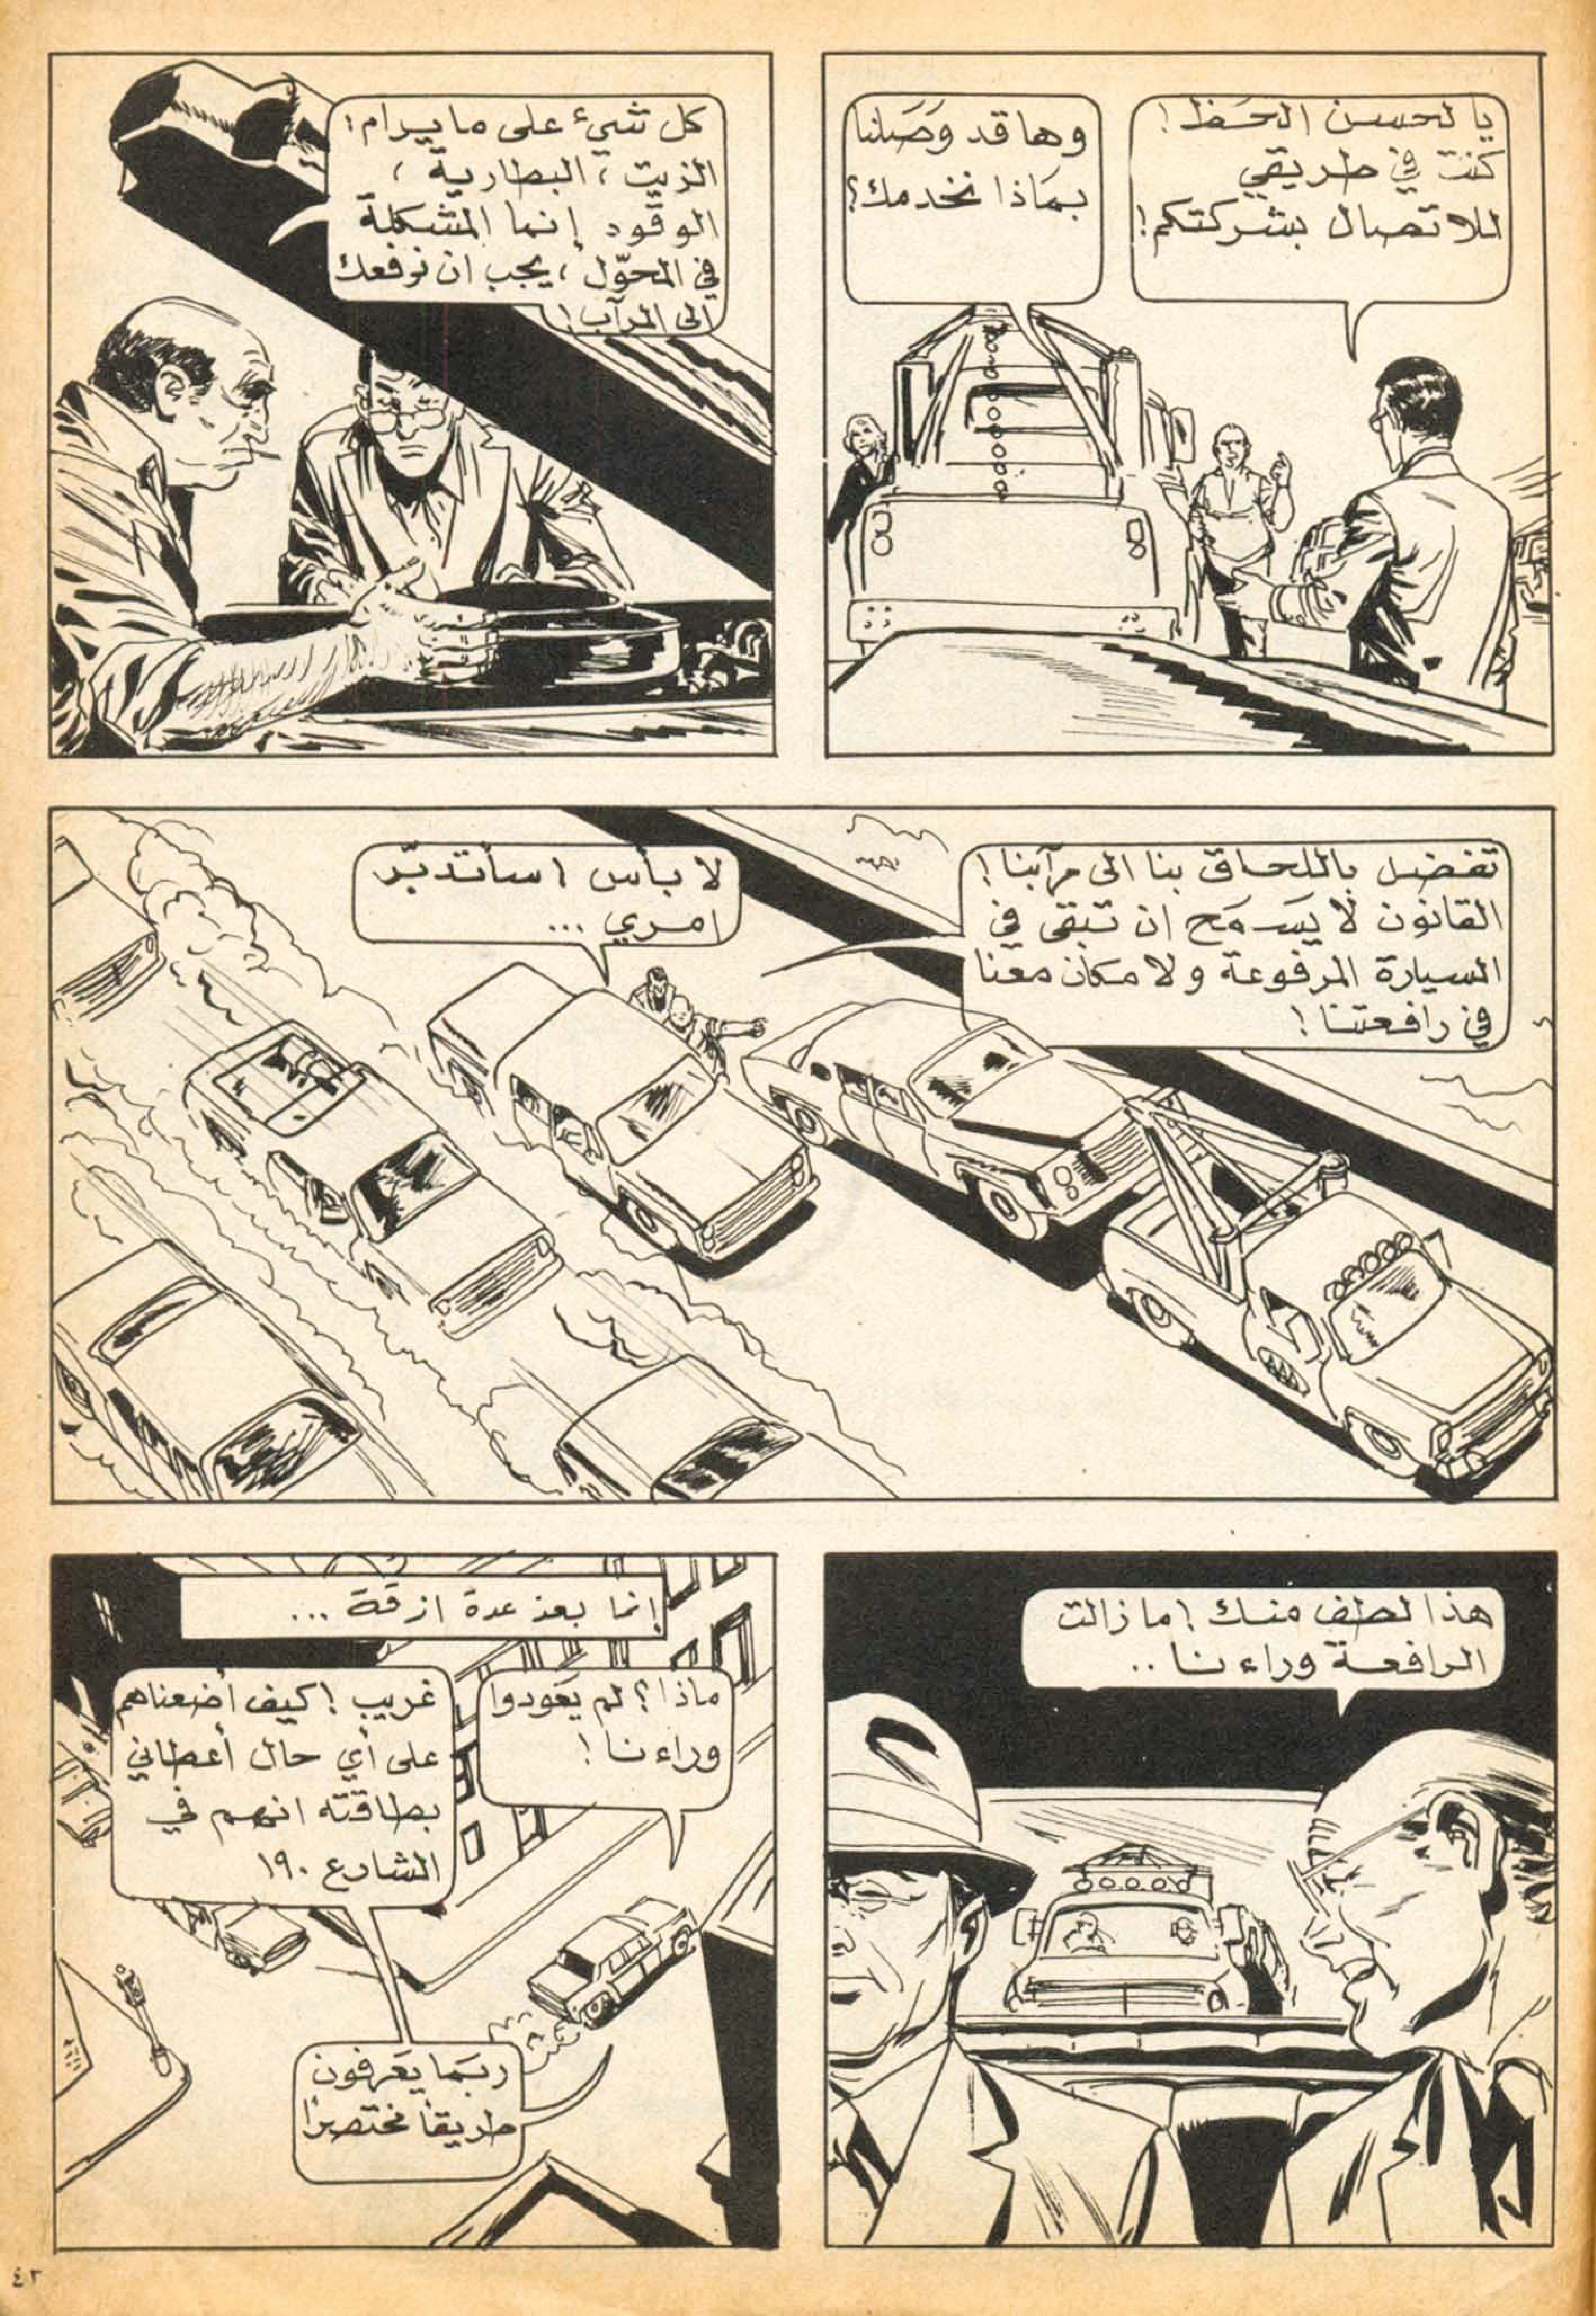 يا لحسن الحظ!
كنت في طريقي
للاتصال بشركتكم!
وها قد وصلنا
بماذا نخدمك؟
كل شيء على ما يرام:
الزيت، البطارية،
الوقود إنما المشكلة
في المحوّل، يجب ان نرفعك
الى المرآب!
تفضل باللحاق بنا الى مرآبنا!
القانون لا يسمح ان تبقى في
السيارة المرفوعة ولا مكان معنا
في رافعتنا!
لا بأس! سأتدبّر
امري ...
هذا لطف منك! ما زالت
الرافعة وراءنا ..
إنما بعد عدة ازقة ...
ماذا؟ لم يعودوا
وراءنا!
غريب! كيف أضعناهم
على أي حال أعطاني
بطاقته انهم في
الشارع ١٩٠
ربما يعرفون
طريقاً مختصراً
٤٢